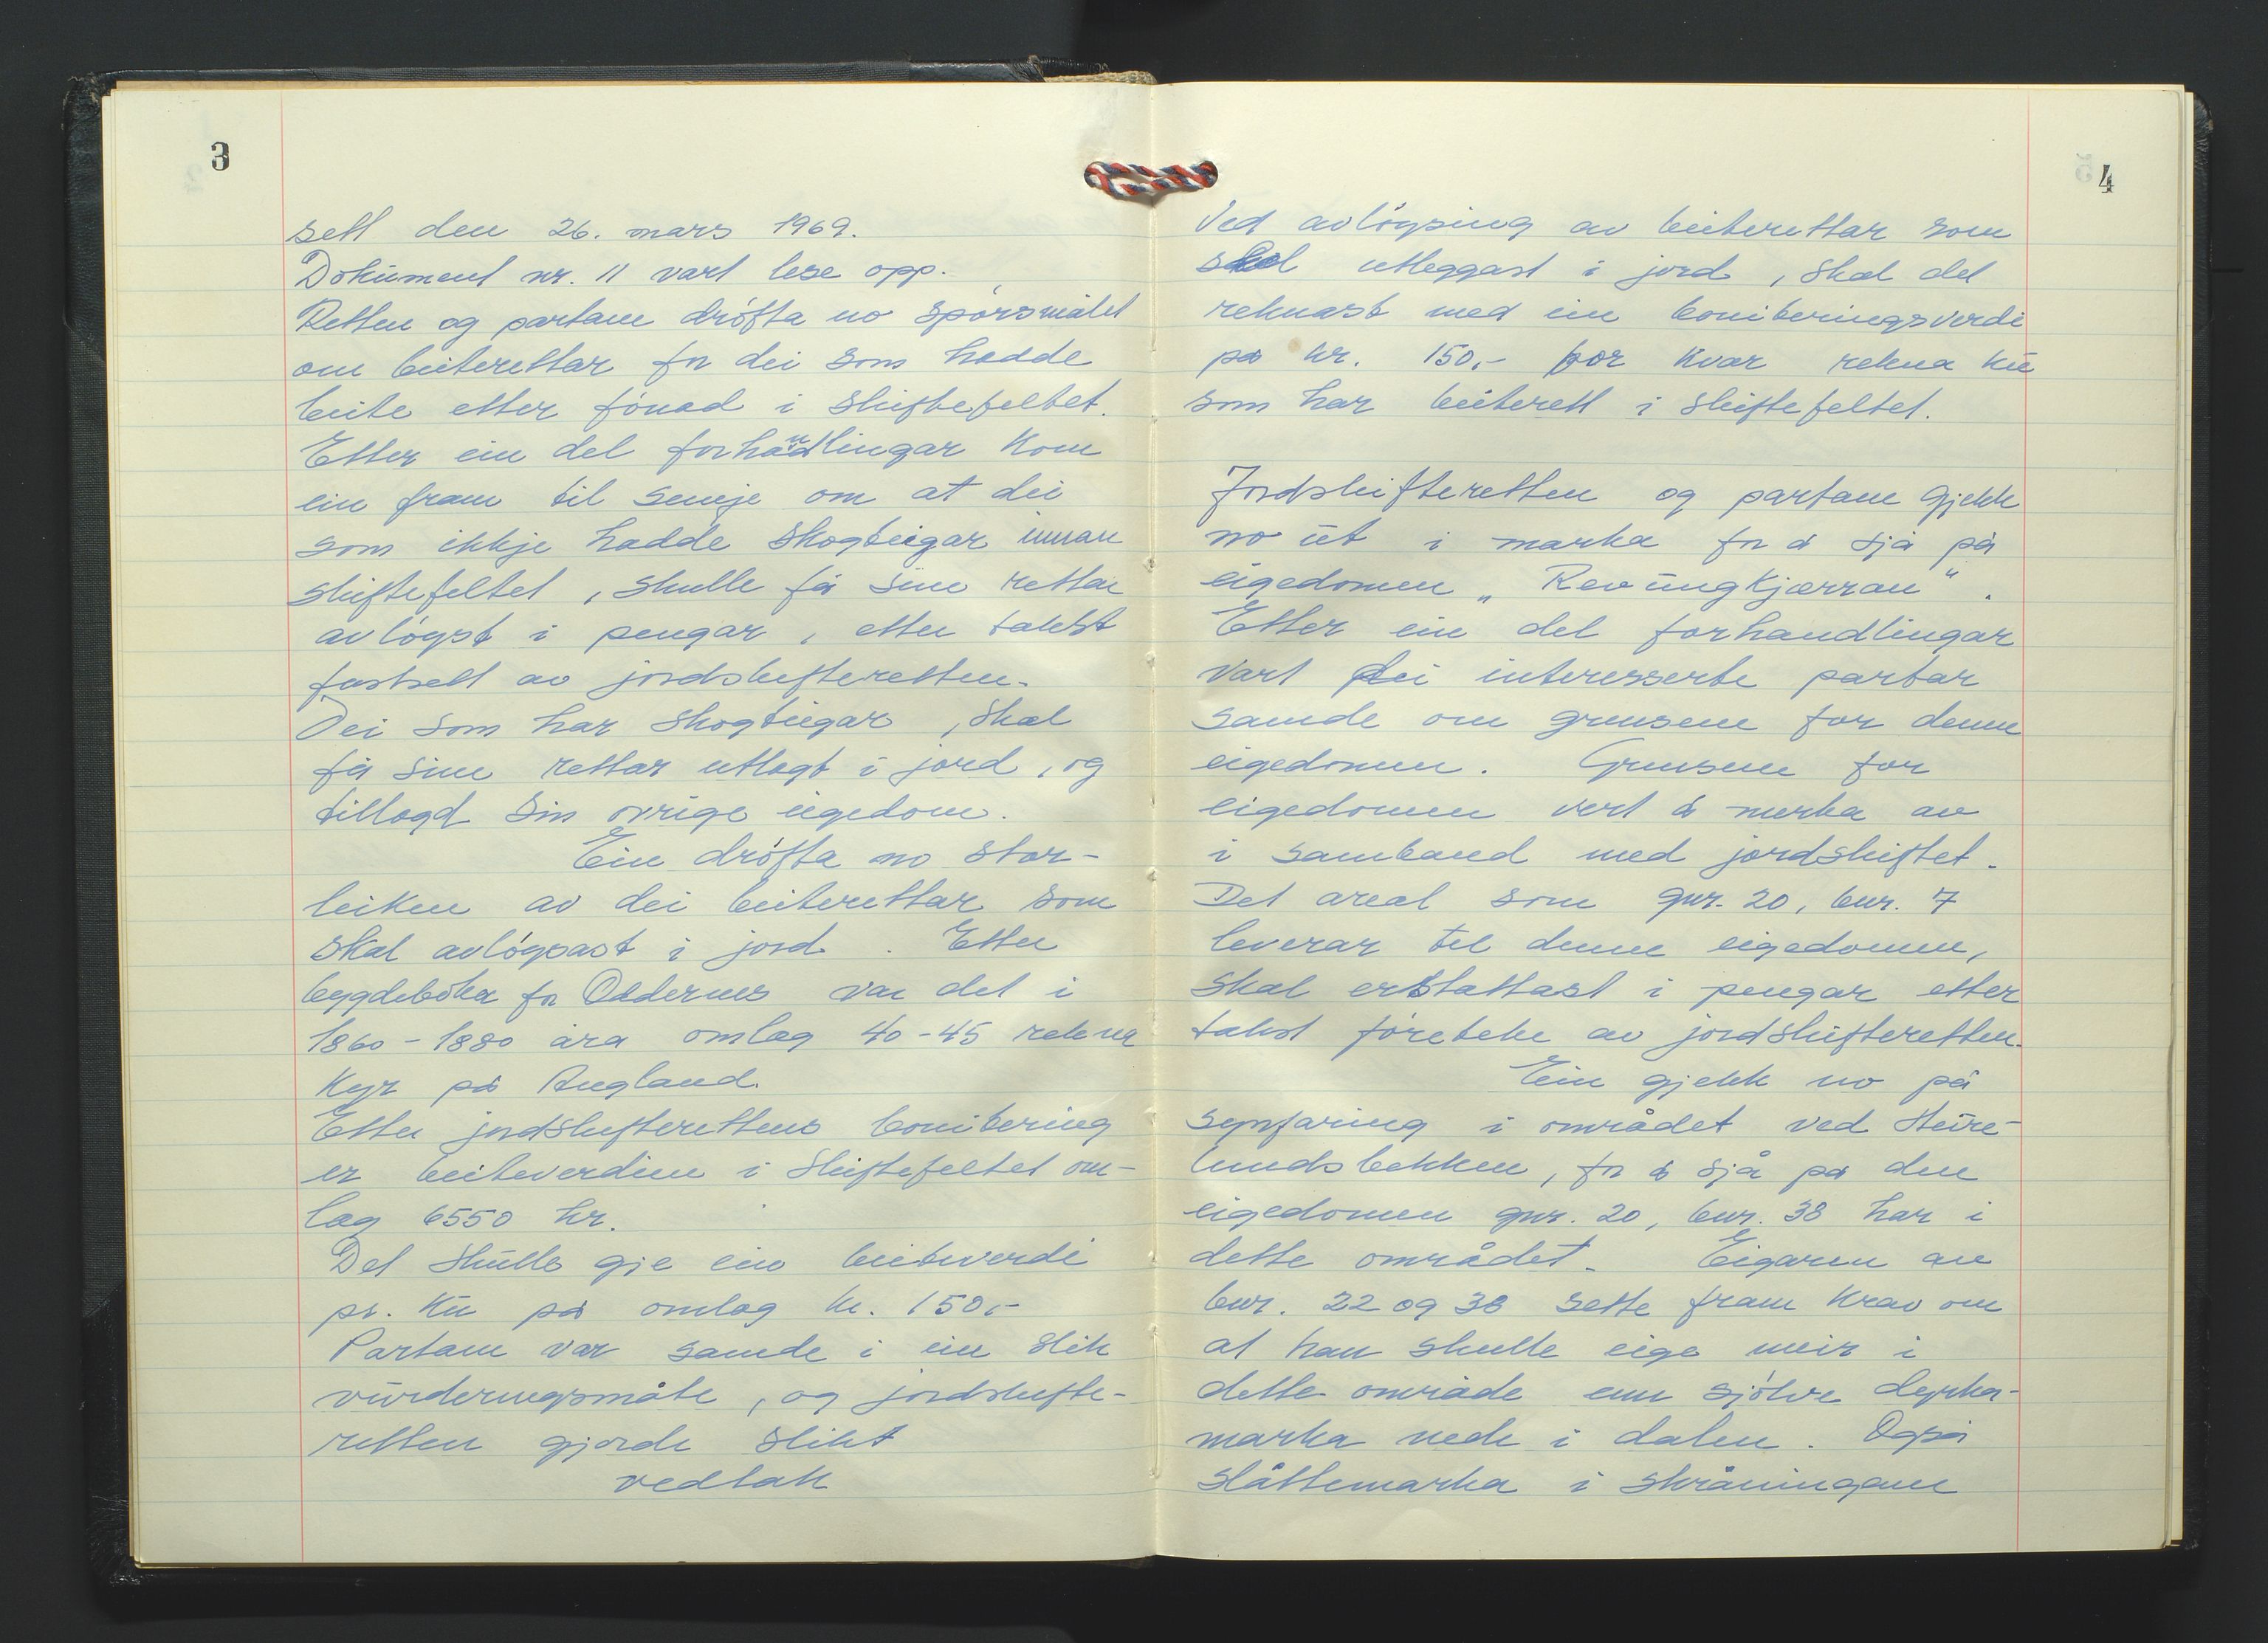 3
sett den 26. mars 1969.
Dokument nr. 11 vart lese opp.
Retten og partane drófta no spórsmålet
om beiterettar for dei som hadde
beite etter fónad i skiftefeltet.
Etter ein del forhandlingar kom
ein fram til semje om at dei
som ikkje hadde skogteigar innan
skiftefeltet, skulle få sine rettar
avlóyst i pengar, etter takst
fastsett av jordskifteretten.
Dei som har skogteigar, skal
få sine rettar utlagt i jord, og
tillagd sin óvrige eigedom.
Ein drófta no stor-
leiken av dei beiterettar som
skal avlóysast i jord. Etter
bygdebóka for Oddernes var det i
1860-1880 åra omlag 40-45 rekna
kyr på Augland.
Etter jordskifterettens bonitering
er beiteverdien i skiftefeltet om-
lag 6550 kr.
Det skulle gje ein beiteverdi
pr. ku på omlag kr. 150,-
Partane var samde i ein slik
vurderingsmåte, og jordskifte-
retten gjorde slikt
vedtak
4
Ved avlóysing av beiterettar som
skal utleggast i jord, skal det
reknast med ein boniteringsverdi
på kr. 150,- for kvar rekna ku
som har beiterett i skiftefeltet.
Jordskifteretten og partane gjekk
no ut i marka for å sjå på
eigedomen "Revungkjærran".
Etter ein del forhandlingar
vart dei interesserte partar
samde om grensene for denne
eigedomen. Grensene for
eigedomen vert å merka av
i samband med jordskiftet.
Det areal som gnr. 20, bnr. 7
leverar til denne eigedomen,
skal erstattast i pengar etter
takst fóreteke av jordskifteretten.
Ein gjekk no på
synfaring i området ved Sture-
lundsbekken, for å sjå på den
eigedomen gnr. 20, bnr. 38 har i
dette området. Eigaren av
bnr. 22 og 38 sette fram krav om
at han skulle eige meir i
dette område enn sjólve dyrka-
marka nede i dalen. Også
slåttemarka i skråningane